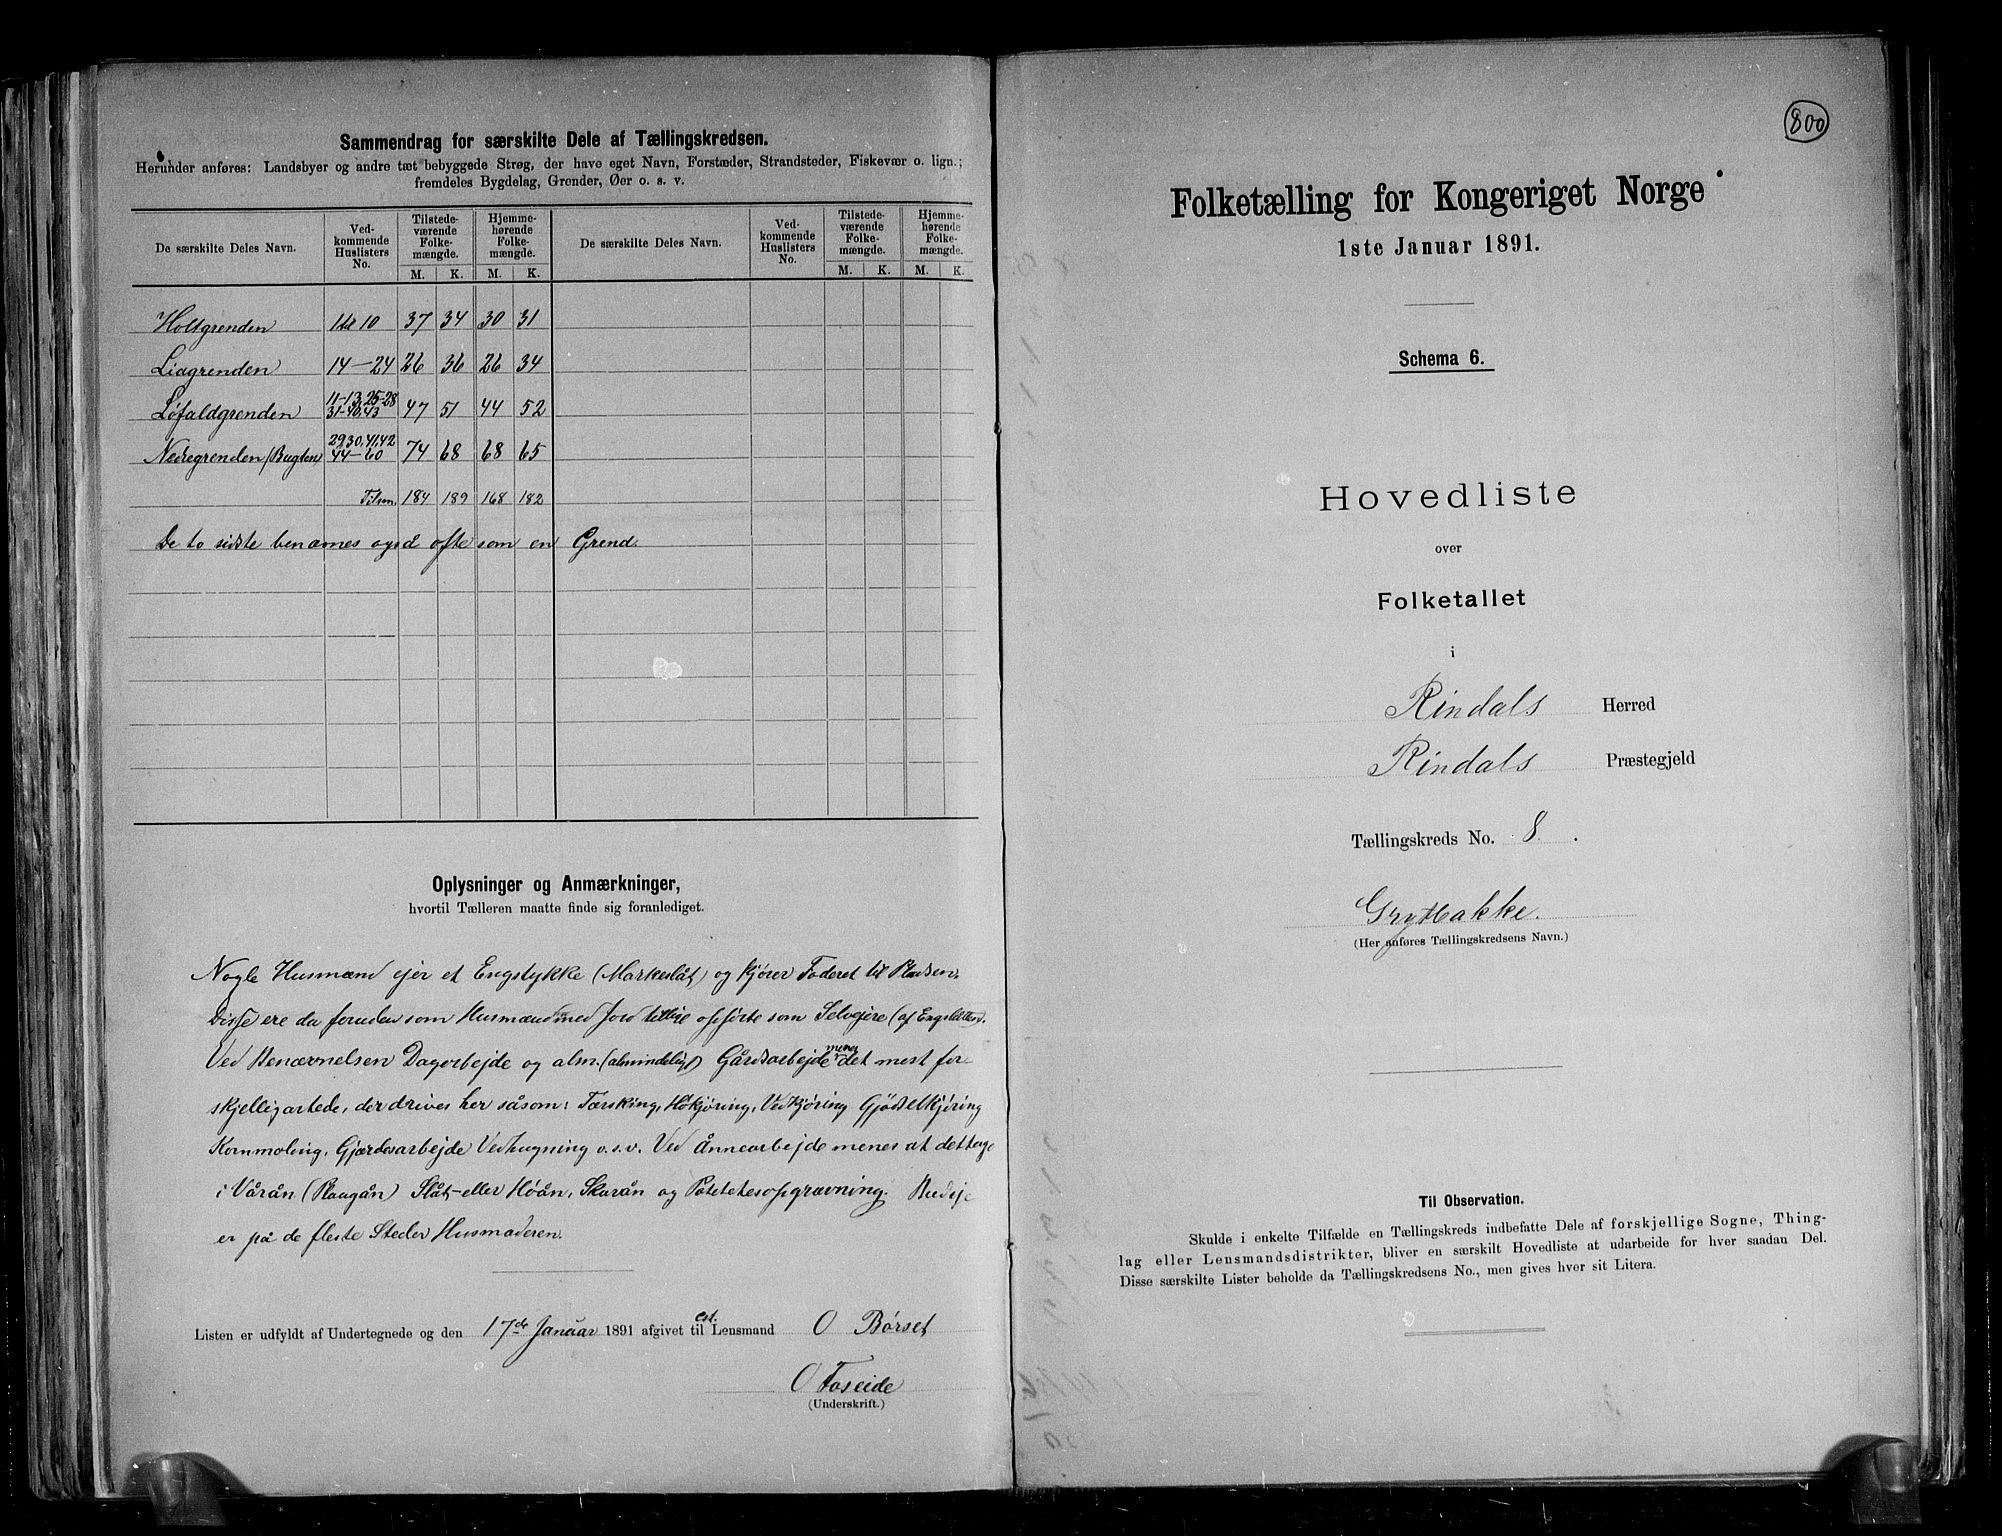 Sammendrag for særskilte Dele af Tællingskredsen.
Herunder anføres: Landsbyer og andre tæt bebyggede Strøg, der have eget Navn, Forstæder, Strandsteder, Fiskevær o. lign.;
fremdeles Bygdelag, Grender, Øer o. s. v.
De særskilte Deles Navn. Vedkommende Huslisters No. Tilstedeværende Folkemængde. M. K. Hjemmehørende Folkemængde. M. K. De særskilte Deles Navn. Vedkommende Huslisters No. Tilstedeværende Folkemængde. M. K. Hjemmehørende Folkemængde. M. K.
Holtgrenden 1 til 10 37 34 30 31
Liagrenden 14-24 26 36 26 34
Løfaldgrenden 11-13, 25-28 31-40, 43 47 51 44 52
Nedregrenden (Bugten) 29, 30, 41, 42 44-60 74 68 68 65
Tilsm. 184 189 168 182
De to sidste benævnes også ofte som en Grend.
Oplysninger og Anmærkninger,
hvortil Tælleren maatte finde sig foranlediget.
Nogle Husmænd ejer et Engstykke (Markeslåt) og kjører Foderet til Pladsen.
Disse ere da foruden som Husmænd med Jord tillige opførte som Selvejere (af Engsletten).
Ved Benævnelsen Dagarbejde og alm. (almindeligt) Gårdsarbejde menes det mest for-
skjelligartede, der drives her såsom: Tærsking, Høkjøring, Vedkjøring Gjødselkjøring
Kornmaling, Gjærdesarbejde Vedhugning o.s.v. Ved Ånnearbejde menes at deltage
i Vårån (Plaugån) Slåt- eller Høån, Skurån og Potetesopgravning. Budeje
er på de fleste Steder Husmoderen.
Listen er udfyldt af Undertegnede og den 17de Januar 1891 afgivet til cst. Lensmand O Børset
O Foseide
(Underskrift.)
800
Folketælling for Kongeriget Norge
1ste Januar 1891.
Schema 6.
Hovedliste
over
Folketallet
i
Rindals Herred
Rindals Præstegjeld
Tællingskreds No. 8.
Grytbakke.
(Her anføres Tællingskredsens Navn.)
Til Observation.
Skulde i enkelte Tilfælde en Tællingskreds indbefatte Dele af forskjellige Sogne, Thing-
lag eller Lensmandsdistrikter, bliver en særskilt Hovedliste at udarbeide for hver saadan Del.
Disse særskilte Lister beholde da Tællingskredsens No., men gives hver sit Litera.